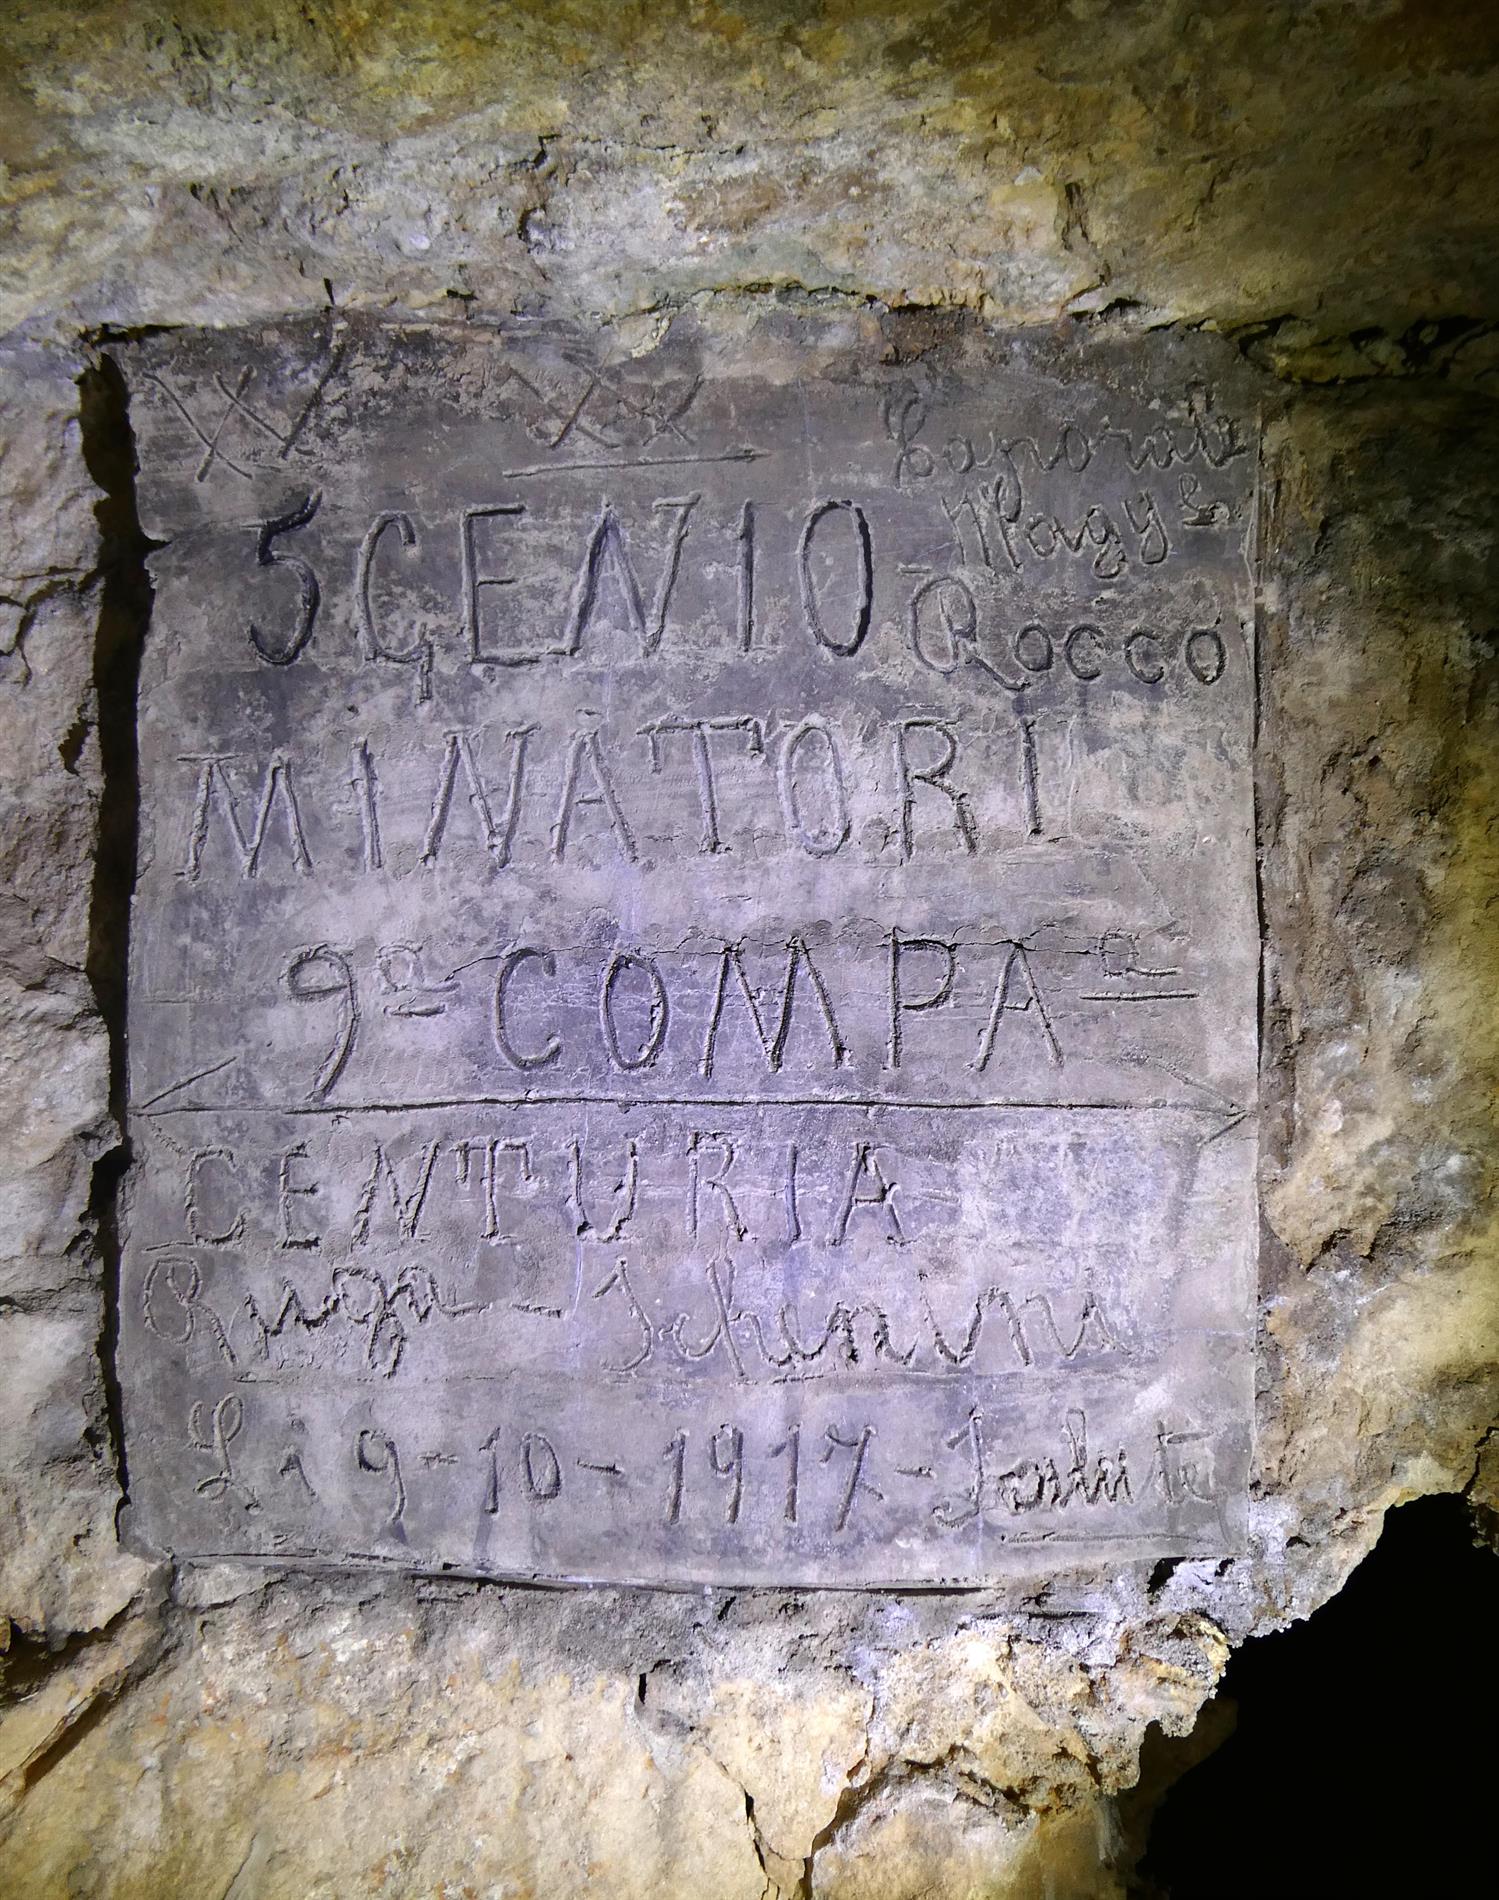 XX XX
Caporale
Magy
Rocco
5 GENIO
MINATORI
9ª COMPAª
CENTURIA
Ruga - Schenini
Li 9-10-1917- Salute